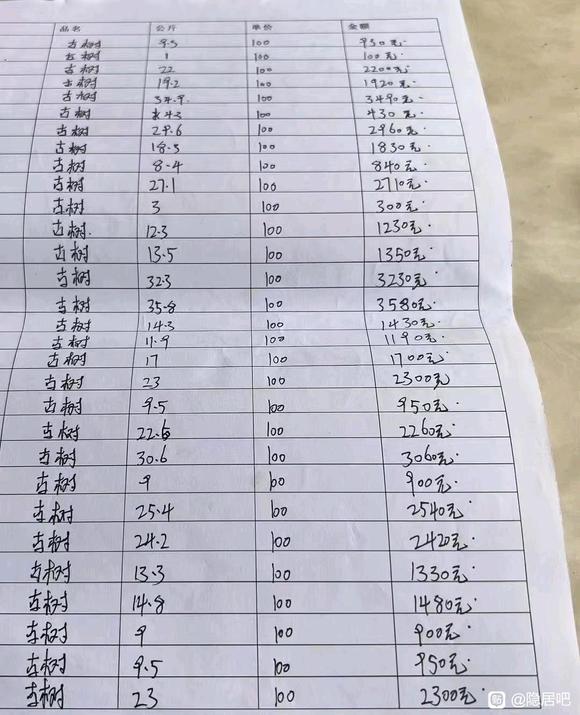 品名 公斤 单价 金额
古树 9.5 100 950元.
古树 1 100 100元.
古树 22 100 2200元.
古树 19.2 100 1920元.
古树 34.9. 100 3490元.
古树 4.3 100 430元.
古树 29.6 100 2960元.
古树 18.3 100 1830元.
古树 8.4 100 840元.
古树 27.1 100 2710元.
古树 3 100 300元.
古树. 12.3 100 1230元.
古树 13.5 100 1350元.
古树 32.3 100 3230元.
古树 35.8 100 3580元.
古树 14.3 100 1430元.
古树 11.9 100 1190元.
古树 17 100 1700元.
古树 23 100 2300元
古树 9.5 100 950元.
古树 22.6 100 2260元.
古树 30.6 100 3060元.
古树 9 100 900元.
古树 25.4 100 2540元
古树 24.2 100 2420元
古树 13.3 100 1330元
古树 14.8 100 1480元
古树 9 100 900元
古树 9.5 100 950元
古树 23 100 2300元
贴 @隐居吧